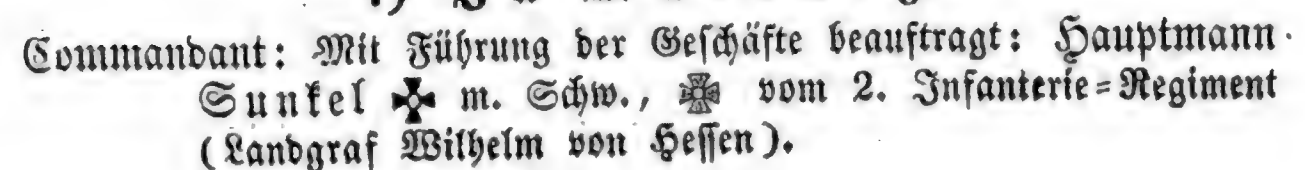 Commandant: Mit Führung der Geschäfte beauftragt: Hauptmann
Sunkel ✠ m. Schw., ✠ vom 2. Infanterie-Regiment
(Landgraf Wilhelm von Hessen).